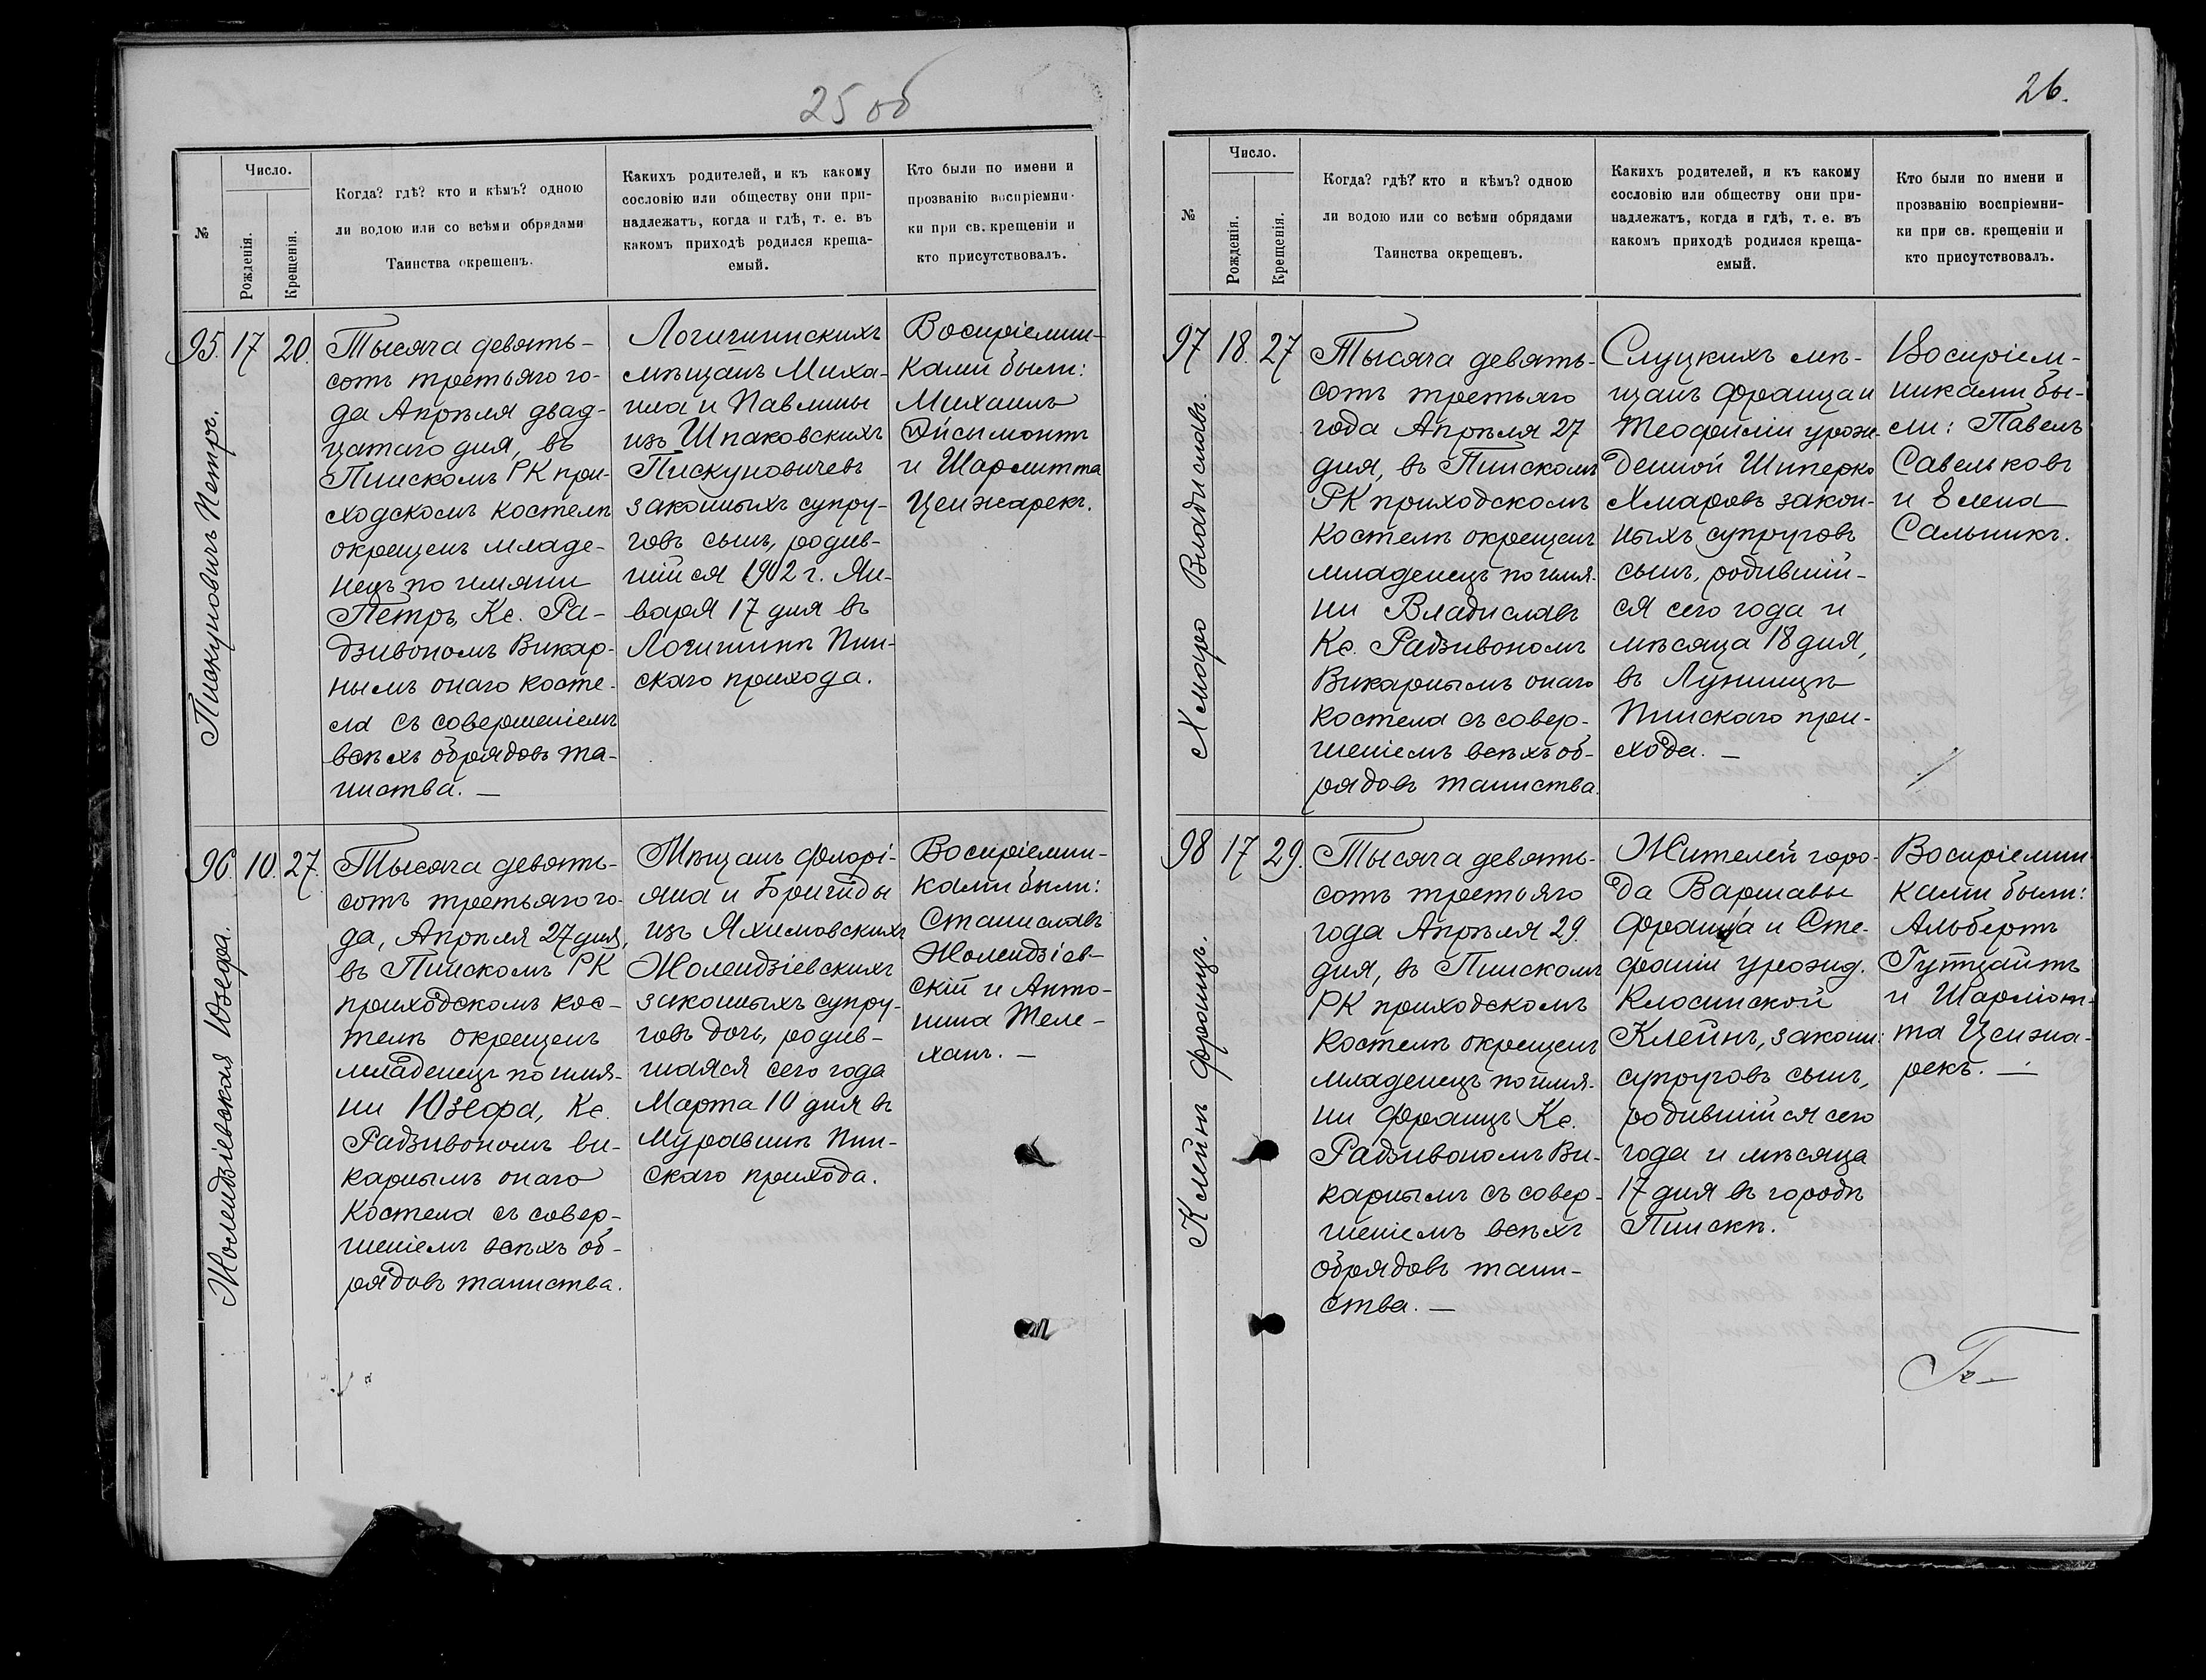 25 об
№
Число.
Рожденія.
Крещенія.
Когда? гдѣ? кто и кѣмъ? одною
ли водою или со всѣми обрядами
Таинства окрещенъ.
Каихъ родителей, и къ какому
сословію или обществу они при-
надлежатъ, когда и гдѣ, т. е. въ
какомъ приходѣ родился креща-
емый.
Кто были по имени и
прозванію воспріемни-
ки при св. крещеніи и
кто присутствовалъ.
95. 17 20.
Пискуновичъ Петръ.
Тысяча девять-
сотъ третьяго го-
да Апрѣля двад-
цатаго дня, въ
Пинскомъ РК при-
ходскомъ костелѣ
окрещенъ младе-
нецъ по имяни
Петръ, Кс. Ра-
дзивономъ Викар-
нымъ онаго косте-
ла съ совершеніемъ
всѣхъ обрядовъ та-
инства. —
Логишинскихъ
мѣщанъ Миха-
ила и Павлины
изъ Шпаковскихъ
Пискуновичевъ
законныхъ супру-
говъ сынъ, родив-
шійся 1902 г. Ян-
варя 17 дня въ
Логишинѣ Пин-
скаго прихода.
Воспріемни-
ками были:
Михаилъ
Ойсымонтъ
и Шарлитта
Ценжарекъ.
96. 10. 27.
Жолендзіевская Юзефа.
Тысяча девять-
сотъ третьяго го-
да, Апрѣля 27 дня,
въ Пинскомъ РК
приходскомъ кос-
телѣ окрещенъ
младенецъ по имя-
ни Юзефа, Кс.
Радзивономъ ви-
карнымъ онаго
Костела съ совер-
шеніемъ всѣхъ об-
рядовъ таинства.
Мѣщанъ Флорі-
яна и Бригиды
изъ Яхимовскихъ
Жолендзіевскихъ
законныхъ супру-
говъ дочь, родив-
шаяся сего года
Марта 10 дня въ
Муравинѣ Пин-
скаго прихода.
Воспріемни-
ками были:
Станиславъ
Жолендзіев-
скій и Анто-
нина Теле-
ханъ. —
26.
№
Число.
Рожденія.
Крещенія.
Когда? гдѣ? кто и кѣмъ? одною
ли водою или со всѣми обрядами
Таинства окрещенъ.
Какихъ родителей, и къ какому
сословію или обществу они при-
надлежатъ, когда и гдѣ, т. е. въ
какомъ приходѣ родился креща-
емый.
Кто были по имени и
прозванію воспріемни-
ки при св. крещеніи и
кто присутствовалъ.
97 18. 27
Хмара Владиславъ.
Тысяча девять-
сотъ третьяго
года Апрѣля 27
дня, въ Пинскомъ
РК приходскомъ
костелѣ окрещенъ
младенецъ по имя-
ни Владиславъ
Кс. Радзивономъ
Викарнымъ онаго
костела съ совер-
шеніемъ всѣхъ об-
рядовъ таинства.
Слуцкихъ мѣ-
щанъ Франца и
Теофиліи урож-
денной Шиперко
Хмаровъ закон-
ныхъ супруговъ
сынъ, родившій-
ся сего года и
мѣсяца 18 дня,
въ Лунинцѣ
Пинскаго при-
хода. —
Воспріем-
никами бы-
ли: Павелъ
Савельковъ
и Елена
Сальникъ.
98 17 29.
Клейнъ Францъ.
Тысяча девять-
сотъ третьяго
года Апрѣля 29.
дня, въ Пинскомъ
РК приходскомъ
Костелѣ окрещенъ
младенецъ по имя-
ни Францъ Кс.
Радзивономъ Ви-
карнымъ съ совер-
шеніемъ всѣхъ
обрядовъ таин-
ства. —
Жителей горо-
да Варшавы
Франца и Сте-
фаніи урожд.
Клосинской
Клейнъ, законн:
супруговъ сынъ,
родившійся сего
года и мѣсяца
17 дня въ городѣ
Пинскѣ.
Воспріемни-
ками были:
Альбертъ
Гутцайтъ
и Шарлот-
та Ценжа-
рекъ. —